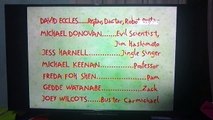 DAVID ECCLES......Aspian, Dactar, Robot
MICHAEL DONOVAN......Evil Scientist,
Jim Hashimoto
JESS HARNELL......Jingle Singer
MICHAEL KEENAN......Professor
FREDA FOH SHEN......Pam
GEDDE WATANABE......Zack
JOEY WILCOTS......Buster Carmichael